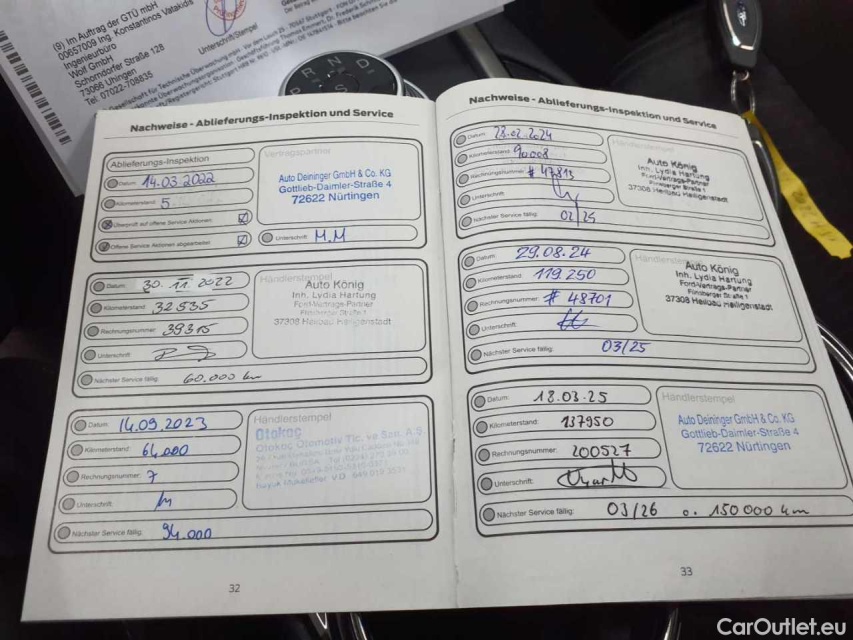 (9) Im Auftrag der GTÜ mbH
00657009 Ing. Konstantinos Vatakidis
Ingenieurbüro
Wolf GmbH
Schorndorfer Straße 128
73066 Uhingen
Tel. 07022-708835
Unterschrift/Stempel
R N D
P S
Nachweise - Ablieferungs-Inspektion und Service
Ablieferungs-Inspektion
Datum: 14.03.2022
Kilometerstand: 5
Überprüft auf offene Service Aktionen
Offene Service Aktionen abgearbeitet
Vertragspartner
Auto Deininger GmbH & Co. KG
Gottlieb-Daimler-Straße 4
72622 Nürtingen
Unterschrift: M.M
Datum: 30.11.2022
Kilometerstand: 32535
Rechnungsnummer: 39315
Unterschrift:
Nächster Service fällig: 60.000 km
Händlerstempel
Auto König
Inh. Lydia Hartung
Ford-Vertrags-Partner
Flinsberger Straße 1
37308 Heilbad Heiligenstadt
Datum: 14.09.2023
Kilometerstand: 64.000
Rechnungsnummer: 7
Unterschrift:
Nächster Service fällig: 94.000
Händlerstempel
Otokoç
Otokoç Otomotiv Tic. ve San. A.Ş.
32
Nachweise - Ablieferungs-Inspektion und Service
Datum: 28.02.2024
Kilometerstand: 90008
Rechnungsnummer: # 47813
Unterschrift:
Nächster Service fällig: 02/25
Händlerstempel
Auto König
Inh. Lydia Hartung
Ford-Vertrags-Partner
Flinsberger Straße 1
37308 Heilbad Heiligenstadt
Datum: 29.08.24
Kilometerstand: 119 250
Rechnungsnummer: # 48701
Unterschrift:
Nächster Service fällig: 03/25
Händlerstempel
Auto König
Inh. Lydia Hartung
Ford-Vertrags-Partner
Flinsberger Straße 1
37308 Heilbad Heiligenstadt
Datum: 18.03.25
Kilometerstand: 137950
Rechnungsnummer: 200527
Unterschrift:
Nächster Service fällig: 03/26 o. 150 000 km
Händlerstempel
Auto Deininger GmbH & Co. KG
Gottlieb-Daimler-Straße 4
72622 Nürtingen
33
CarOutlet.eu